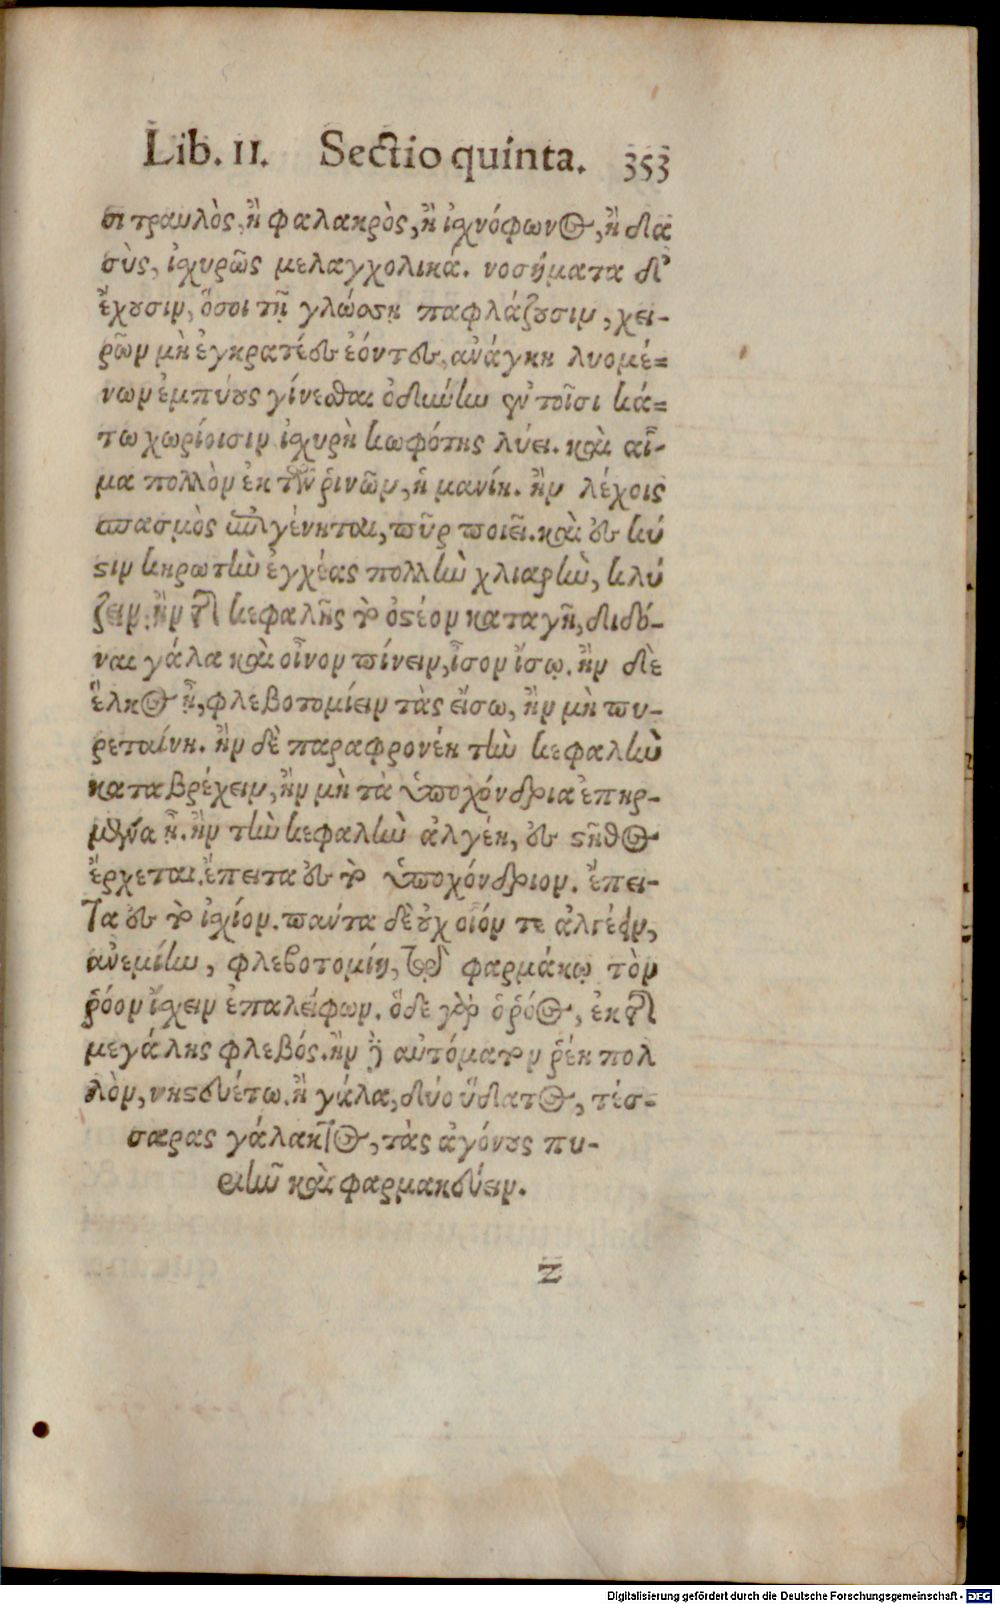 Lib. II. Sectio quinta. 353
σι τραυλὸς, ἢ φαλακρὸς, ἢ ἰχνόφωνος, ἢ δα
σὺς, ἰχυρῶς μελαγχολικά. νοσήματα δ'
ἔχουσιν, ὅσοι τῇ γλώσσῃ παφλάζουσιν, χει-
ρῶν μὴ ἐγκρατέες ἐόντες, ἀνάγκη λυομέ-
νων ἐμπύους γίνεσθαι ὀδύνην ἐν τοῖσι κά-
τω χωρίοισιν ἰχυρὴ κωφότης λύει. καὶ αἷ-
μα πολλὸν ἐκ τῶν ῥινῶν, ἢ μανίη. ἢν λέχοις
σπασμὸς ἐπιγένηται, πῦρ ποιεῖ. καὶ ἐς κύ
στιν κηρωτὴν ἐγχέας πολλὴν χλιαρὴν, κλύ
ζειν. ἢν τῆς κεφαλῆς τὸ ὀστέον καταγῇ, διδό-
ναι γάλα καὶ οἶνον πίνειν, ἶσον ἴσῳ. ἢν δὲ
ἕλκος ᾖ, φλεβοτομίειν τὰς εἴσω, ἢν μὴ πυ-
ρεταίνη. ἢν δὲ παραφρονέη τὴν κεφαλὴν
καταβρέχειν, ἢν μὴ τὰ ὑποχόνδρια ἐπηρ-
μένα ᾖ. ἢν τὴν κεφαλὴν ἀλγέη, ἐς στῆθος
ἔρχεται. ἔπειτα ἐς τὸ ὑποχόνδριον. ἔπει-
τα ἐς τὸ ἰχίον. πάντα δὲ οὐχ οἷόν τε ἀλγέειν,
ἀνεμίην, φλεβοτομίῃ, φαρμάκῳ τὸν
ῥόον ἴχειν ἐπαλείφων. ὅδε γὰρ ὁ ῥόος, ἐκ τῆς
μεγάλης φλεβός. ἢν δὲ αὐτόματον ῥέη πολ
λὸν, νηστευέτω. ἢ γάλα, δύο ὕδατος, τέσ-
σαρας γάλακτος, τὰς ἀγόνους πυ-
ριῆν καὶ φαρμακεύειν.
Z
Digitalisierung gefördert durch die Deutsche Forschungsgemeinschaft - DFG